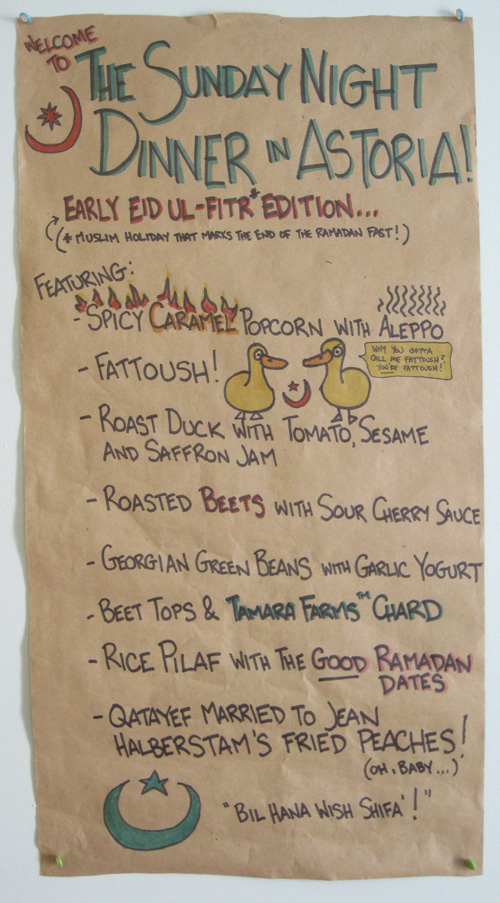 WELCOME TO
THE SUNDAY NIGHT
DINNER IN ASTORIA!
EARLY EID UL-FITR* EDITION...
(* MUSLIM HOLIDAY THAT MARKS THE END OF THE RAMADAN FAST!)
FEATURING:
- SPICY CARAMEL POPCORN WITH ALEPPO
- FATTOUSH!
WHY YOU GOTTA
CALL ME FATTOUSH?
YOU'RE FATTOUSH!
- ROAST DUCK WITH TOMATO, SESAME
AND SAFFRON JAM
- ROASTED BEETS WITH SOUR CHERRY SAUCE
- GEORGIAN GREEN BEANS WITH GARLIC YOGURT
- BEET TOPS & TAMARA FARMS™ CHARD
- RICE PILAF WITH THE GOOD RAMADAN
DATES
- QATAYEF MARRIED TO JEAN
HALBERSTAM'S FRIED PEACHES!
(OH, BABY...)
"BIL HANA WISH SHIFA'!"